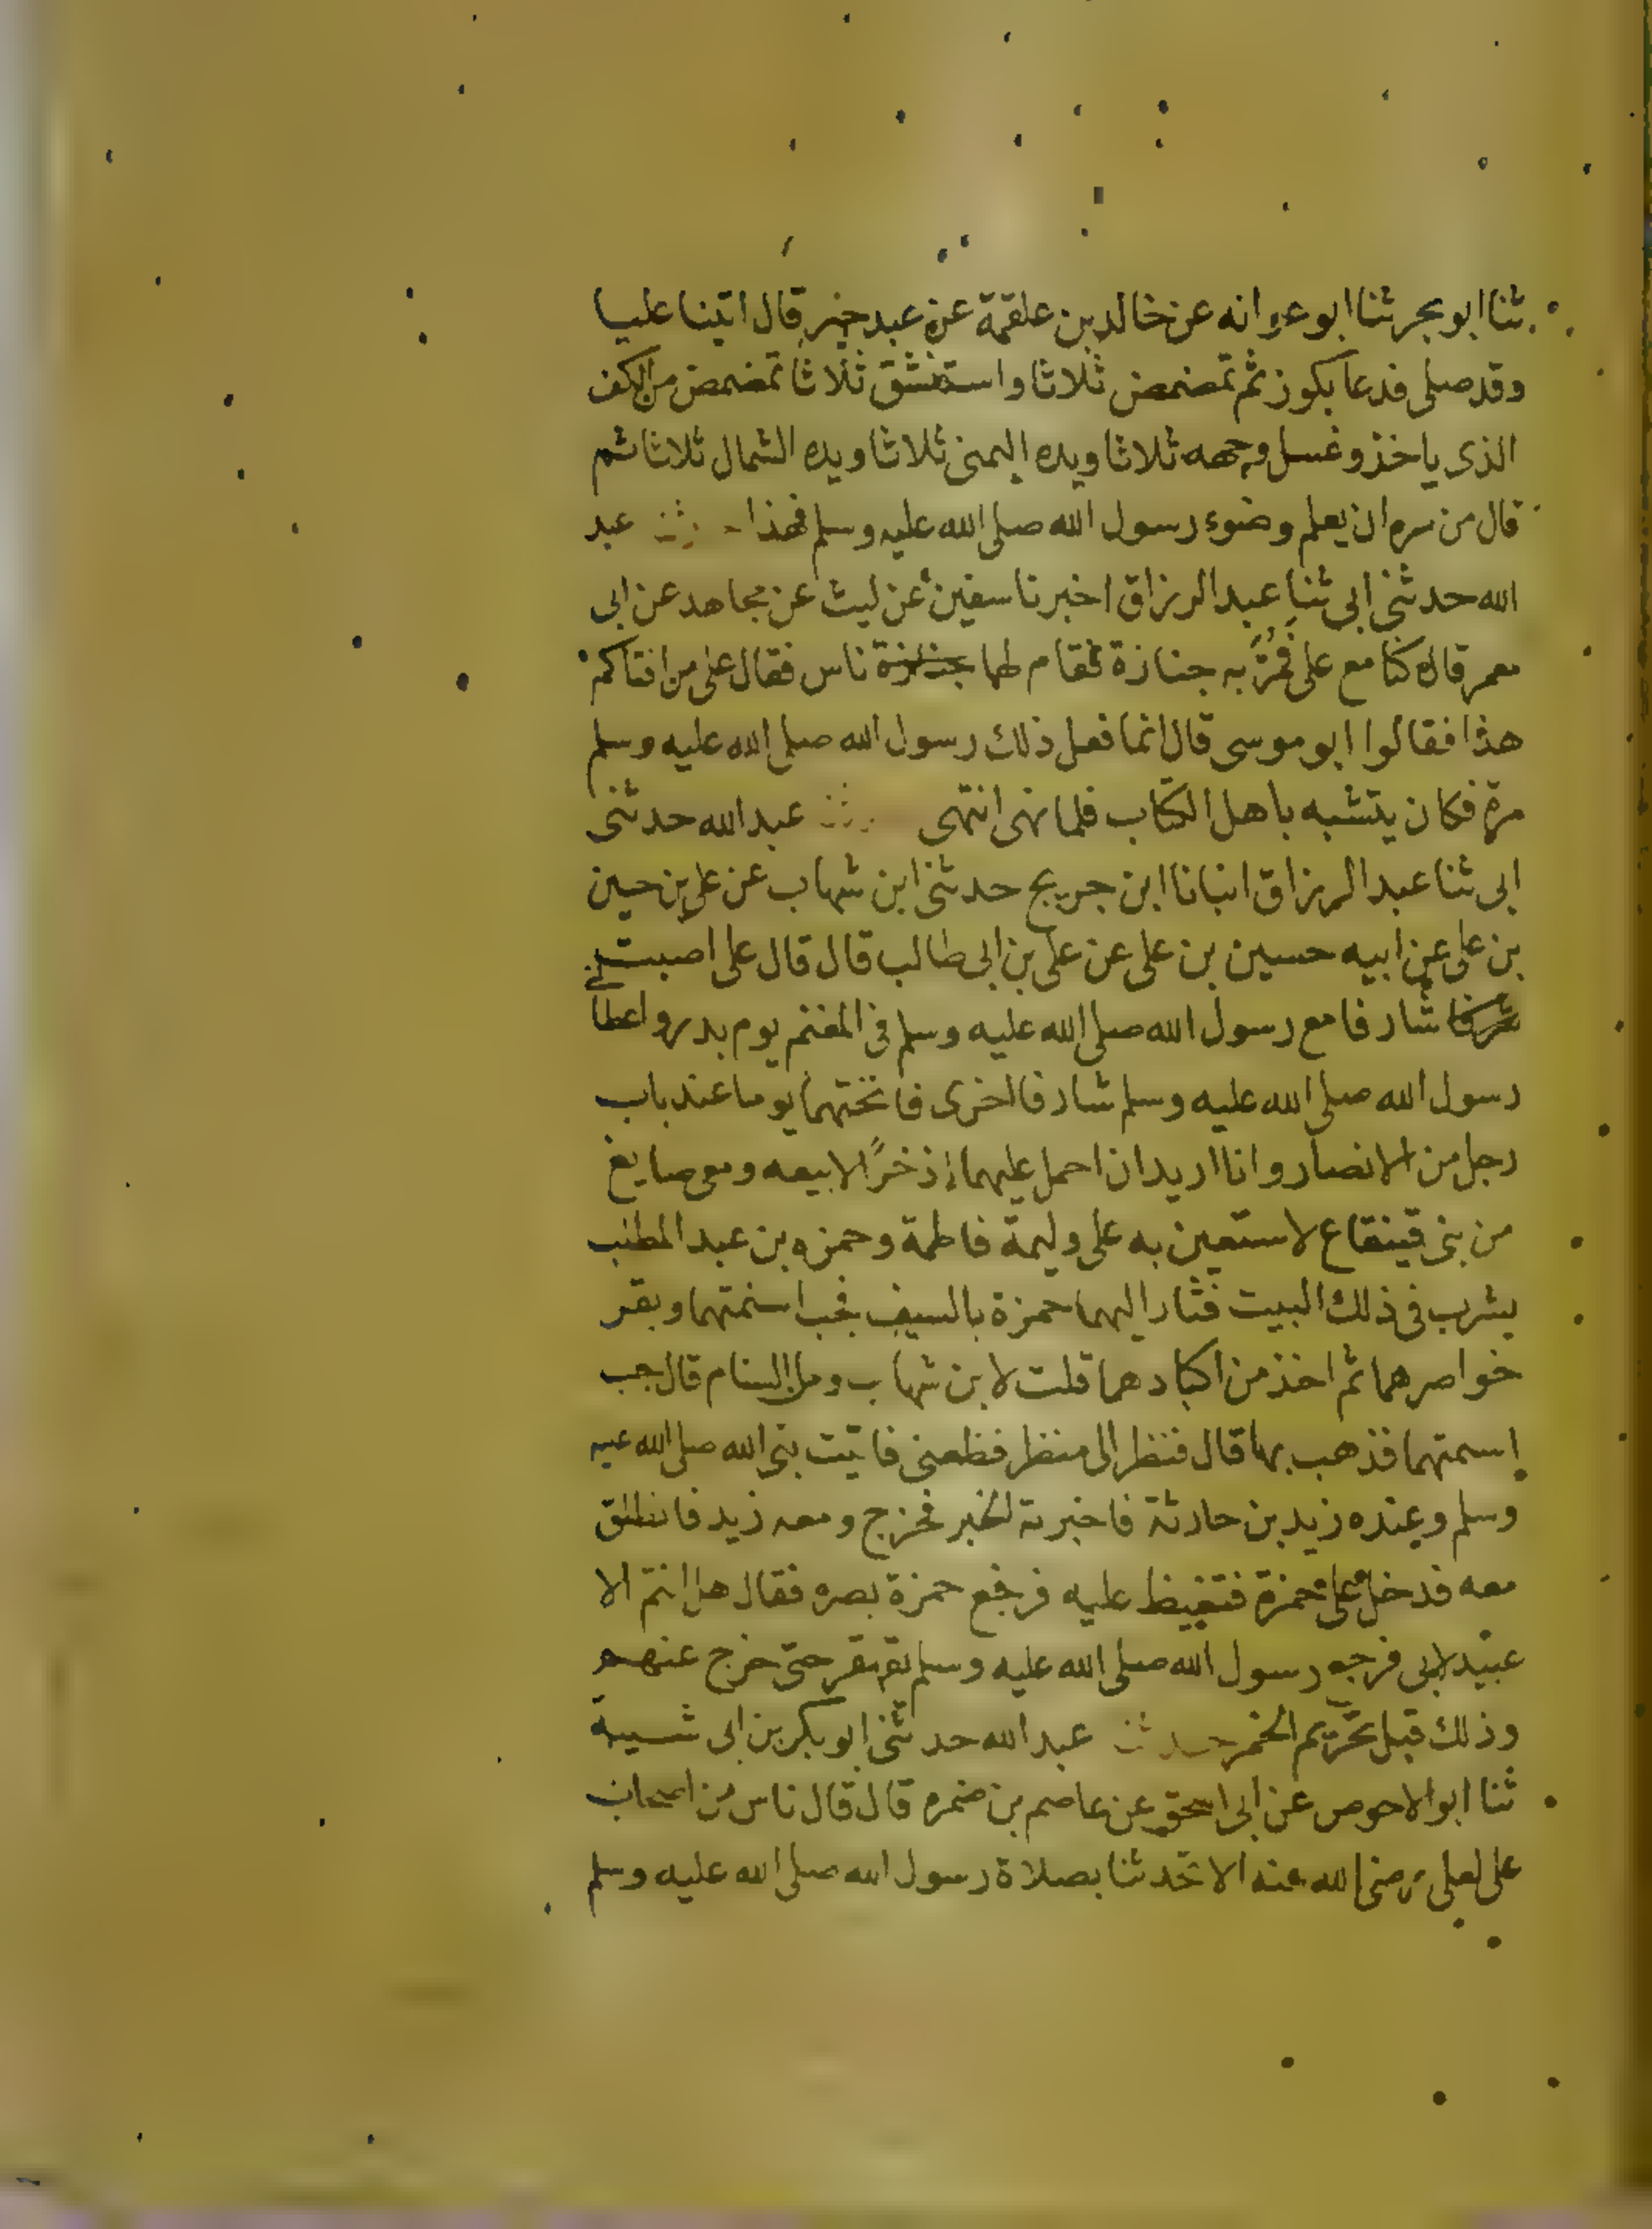 ثنا ابو بحر ثنا ابو عوانه عن خالد بن علقمة عن عبد خير قال اتينا عليا
وقد صلى فدعا بكوز ثم تمضمض ثلاثا واستنشق ثلاثا تمضمض من الكف
الذى ياخذ وغسل وجهه ثلاثا ويده اليمنى ثلاثا ويده الشمال ثلاثا ثم
قال من سره ان يعلم وضوء رسول الله صلى الله عليه وسلم فهذا حدثنا عبد
الله حدثنى ابى ثنا عبد الرزاق اخبرنا سفين عن ليث عن مجاهد عن ابى
معمر قال كنا مع على فمر به جنازة فقام لها ناس فقال على من افتاكم
هذا فقالوا ابو موسى قال انما فعل ذلك رسول الله صلى الله عليه وسلم
مرة فكان يتشبه باهل الكتاب فلما نهى انتهى حدثنا عبد الله حدثنى
ابى ثنا عبد الرزاق انبانا ابن جريج حدثنى ابن شهاب عن على بن حسين
بن على عن ابيه حسين بن على عن على بن ابى طالب قال قال على اصبت
شارفا مع رسول الله صلى الله عليه وسلم فى المغنم يوم بدر واعطا
رسول الله صلى الله عليه وسلم شارفا اخرى فانختهما يوما عند باب
رجل من الانصار وانا اريد ان احمل عليهما اذخرًا لابيعه ومعى صايغ
من بنى قينقاع لاستعين به على وليمة فاطمة وحمزه بن عبد المطلب
يشرب فى ذلك البيت فثار اليهما حمزة بالسيف فجب اسنمتهما وبقر
خواصرهما ثم اخذ من اكبادهما قلت لابن شهاب ومن السنام قال جب
اسمتهما فذهب بها قال فنظر الى منظر فظعنى فاتيت نبى الله صلى الله عليه
وسلم وعنده زيد بن حارثة فاخبرته الخبر فخرج ومعه زيد فانطلق
معه فدخل على حمزة فتغيظ عليه فرفع حمزة بصره فقال هل انتم الا
عبيد لابى فرجع رسول الله صلى الله عليه وسلم يقهقر حتى خرج عنهم
وذلك قبل تحريم الخمر حدثنا عبد الله حدثنى ابو بكر بن ابى شيبة
ثنا ابو الاحوص عن ابى اسحق عن عاصم بن ضمره قال قال ناس من اصحاب
على لعلى رضى الله عنه الا تحدثنا بصلاة رسول الله صلى الله عليه وسلم